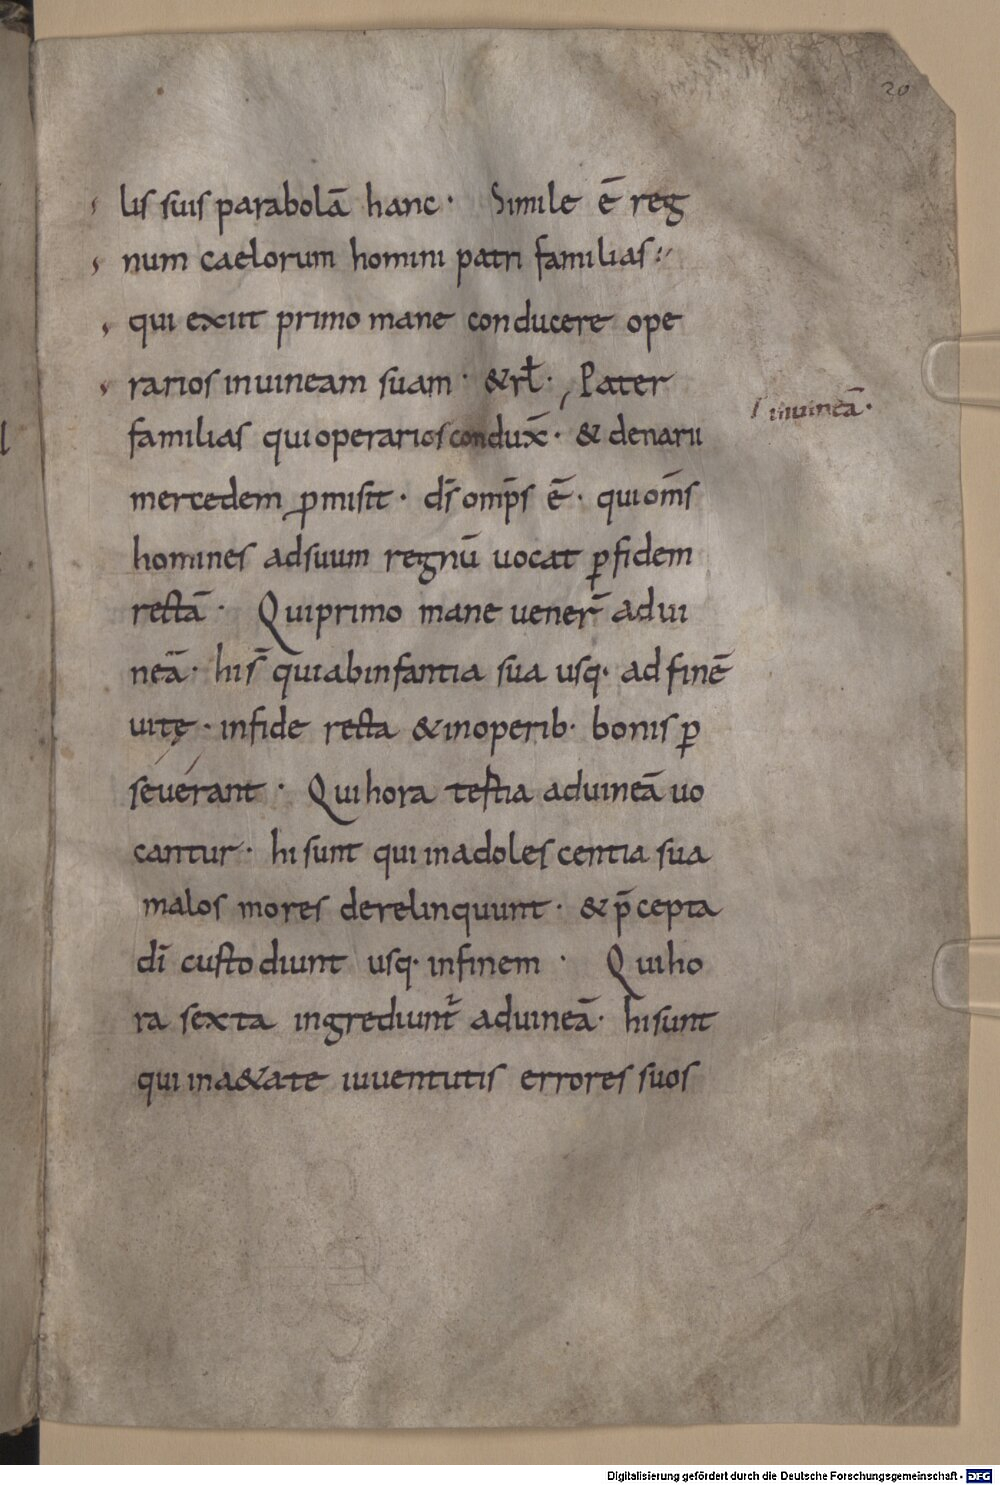 20
lis suis parabolā hanc · Simile ē reg
num caelorum homini patri familias :
qui exiit primo mane conducere ope
rarios inuineam suam · &rł · Pater
/ inuineā ·
familias qui operarios condux̄ · & denarii
mercedem ꝓmisit · d̄s omp̄s ē · qui om̄s
homines adsuum regnū uocat ꝑfidem
rectā · Qui primo mane uener̄ adui
neā · hi s̄ qui abinfantia sua usq· ad finē
uitę · infide recta & inoperib· bonis ꝑ
seuerant · Qui hora tertia aduineā uo
cantur · hi sunt qui inadolescentia sua
malos mores derelinquunt · & p̄cepta
dī custodiunt usq· infinem · Qui ho
ra sexta ingrediunt̄ aduineā · hi sunt
qui ina&ate iuuentutis errores suos
Digitalisierung gefördert durch die Deutsche Forschungsgemeinschaft - DFG